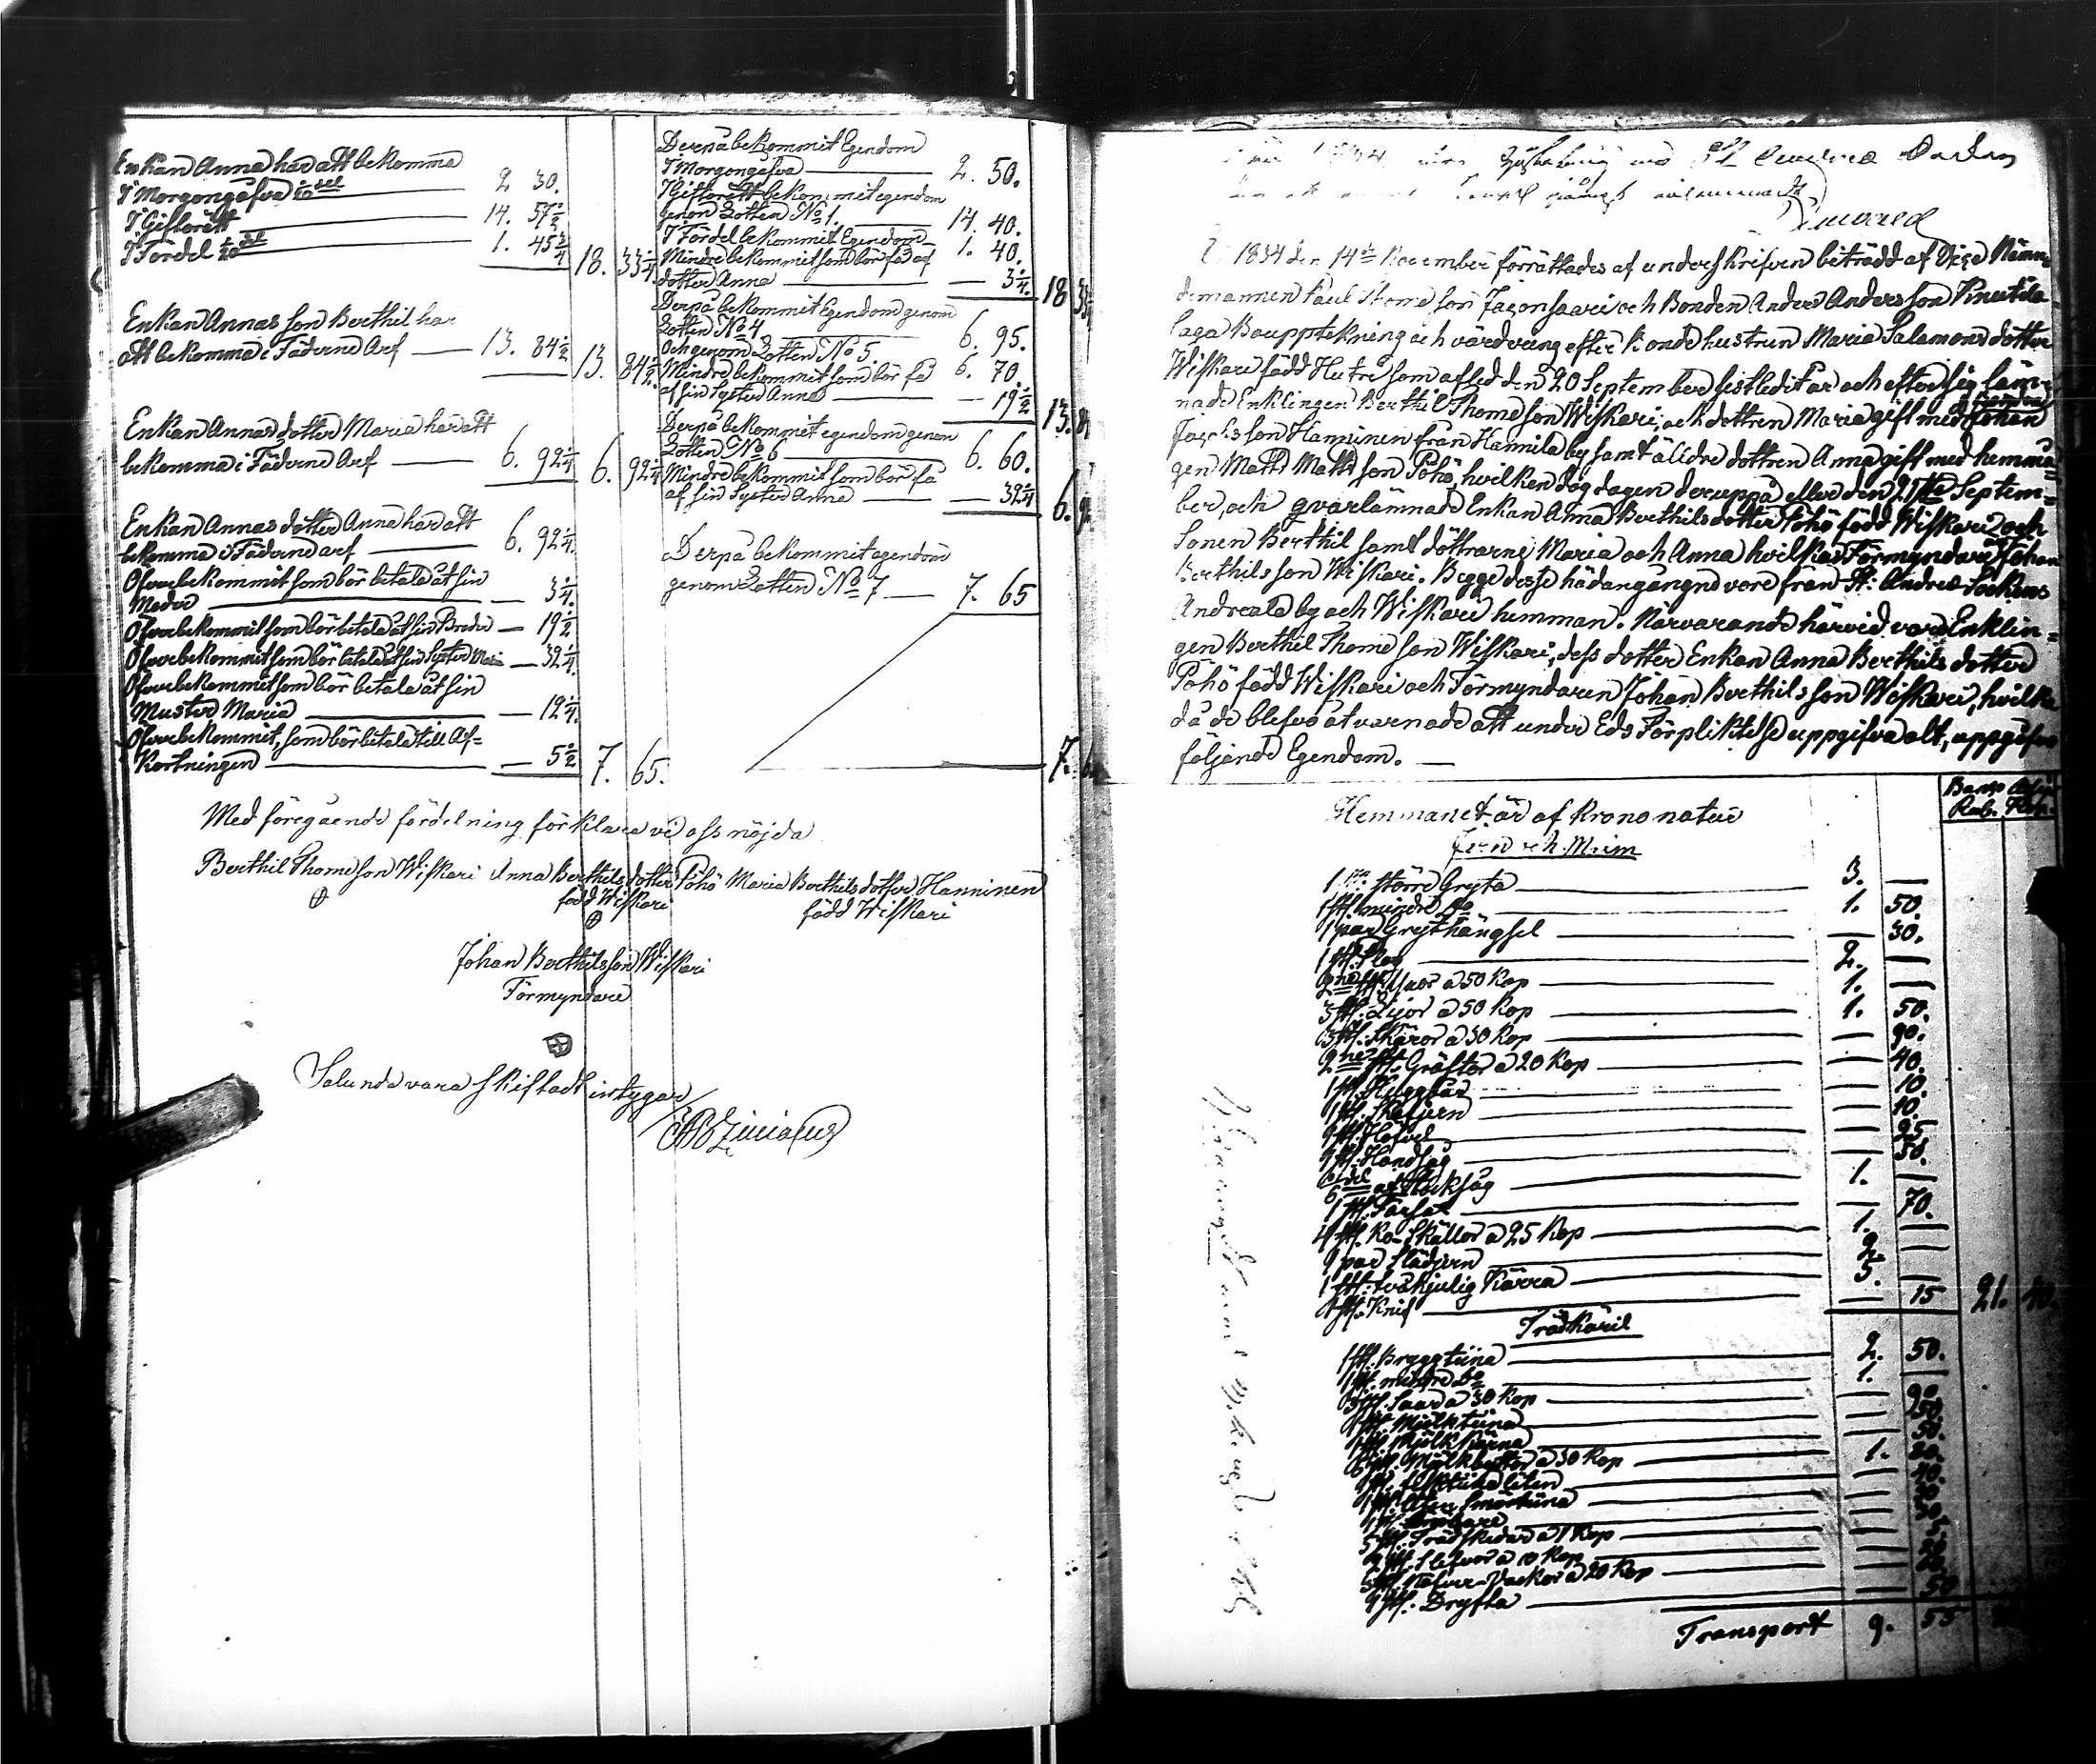 Enkan Anna har att bekomma
I Morgongåfva 2 30.
I Giftorätt 14. 57½
I Fördel 1/20 del 1. 45¾ 18. 33¼
Enkan Annas son Berthil har
att bekomma i Fäderne Arf 13. 84½ 13. 84½
Enkan Annas dotter Maria har att
bekomma i Fäderne Arf 6. 92¼ 6. 92¼
Enkan Annas dotter Anna har att
bekomma i Fäderne arf 6. 92¼
Öfverbekommit som bör betala åt sin
Moder 3¼.
Öfverbekommit som bör betala åt sin Broder 19½
Öfverbekommit som bör betala åt sin Syster Maria 32¼.
Öfverbekommit som bör betala åt sin
Muster Maria 12¼.
Öfverbekommit, som bör betala till Af=
kortningen 5½ 7. 65.
Derpå bekommit Egendom
I Morgongåfva 2. 50.
I Giftorätt bekommit egendom
genom Lotten No 1. 14. 40.
I Fördel bekommit Egendom 1. 40.
Mindre bekommit som bör få af
dotter Anna 3¼. 18 33¼
Derpå bekommit Egendom genom
Lotten No 4 6. 95.
Och genom Lotten No 5. 6. 70.
Mindre bekommit som bör få
af sin Syster Anna 19½ 13.
Derpå bekommit egendom genom
Lotten No 6 6. 60.
Mindre bekommit som bör få
af sin Syster Anna 32¼ 6.
Derpå bekommit egendom
genom Lotten No 7 7. 65
7.
Med föregående fördelning förklara vi oss nöjda
Berthil Thomesson Wiskari Anna Berthilsdotter Pöhö Maria Berthilsdotter Hanninen
född Wiskari född Wiskari
Johan Berthilsson Wiskari
Förmyndare
Salunda vara skiftadt intygar
1834
År 1834 den 14de November förrättades af underskrifven biträdd af Vice Nämn=
demannen Paul Thomesson Jagonsaari och Bonden Anders Andersson Knutila
laga Bouppteckning och värdering efter Bondehustrun Maria Salamonsdotter
Wiskari född Hutri som afled den 20 September sistledit år och efter sig läm=
nade Enklingen Berthil Thomesson Wiskari, och dottren Maria gift med Johan
Jacobsson Hanninen från Hannila by samt äldre dottren Anna gift med hemma=
gen Matts Mattsson Pöhö, hvilken dog dagen deruppå eller den 21sta Septem=
ber, och qvarlämnade Enkan Anna Berthilsdotter Pöhö född Wiskari och
Sonen Berthil samt döttrarne Maria och Anna hvilkas Förmyndare Johan
Berthilsson Wiskari. Begge desse hädangångne vore från St. Andreæ Sockens
Andreala by och Wiskari hemman. Närvarande härvid voro Enklin=
gen Berthil Thomesson Wiskari, dess dotter Enkan Anna Berthilsdotter
Pöhö född Wiskari och Förmyndaren Johan Berthilsson Wiskari, hvilka
då de blefvo åtvarnade att under Eds Förpliktelse uppgifva alt, uppgåfvo
följande Egendom.
Banco Assign.
Rub. Kop.
Hemmanet är af krono natur
Jern och Malm
1 st. större Gryta 3. —
1 st. mindre Do 1. 50.
1 par Grythängsel — 30.
1 st. Plog 2. —
2ne st. Yxor a 50 Kop 1. —
3 st. Lijor a 50 Kop 1. 50.
3 st. Skäror a 30 Kop — 90.
2ne st. Gräftor a 20 Kop — 40.
1 st. — 10
1 st. Skafjern — 10.
1 st. Höfvel — 25
1 st. Handsåg — 50.
6 del af Stocksåg 1. —
1 st. — 70.
4 st. Ko-Skällor a 25 Kop 1. —
1 par Slädjern 2. —
1 st. tvåhjulig Kärra 5. —
1 st. Knif — 15 21. 40.
Trädkäril
1 st. Bryggtiina 2. 50.
1 st. mindre Do 1. —
3 st. Saar a 30 Kop — 90.
1 st. Mjölktiina — 50.
1 st. Mjölk kärna — 50.
6 st. Mjölkbyttor a 30 Kop 1. 80.
1 st. liten — 40.
1 st. liten Smörtiina
1 st.
5 st. Trädskedar a 1 Kop
2 st. Slefvar a 10 Kop
a 20 Kop
1 st. Dryfta — 50
Transport 9. 55